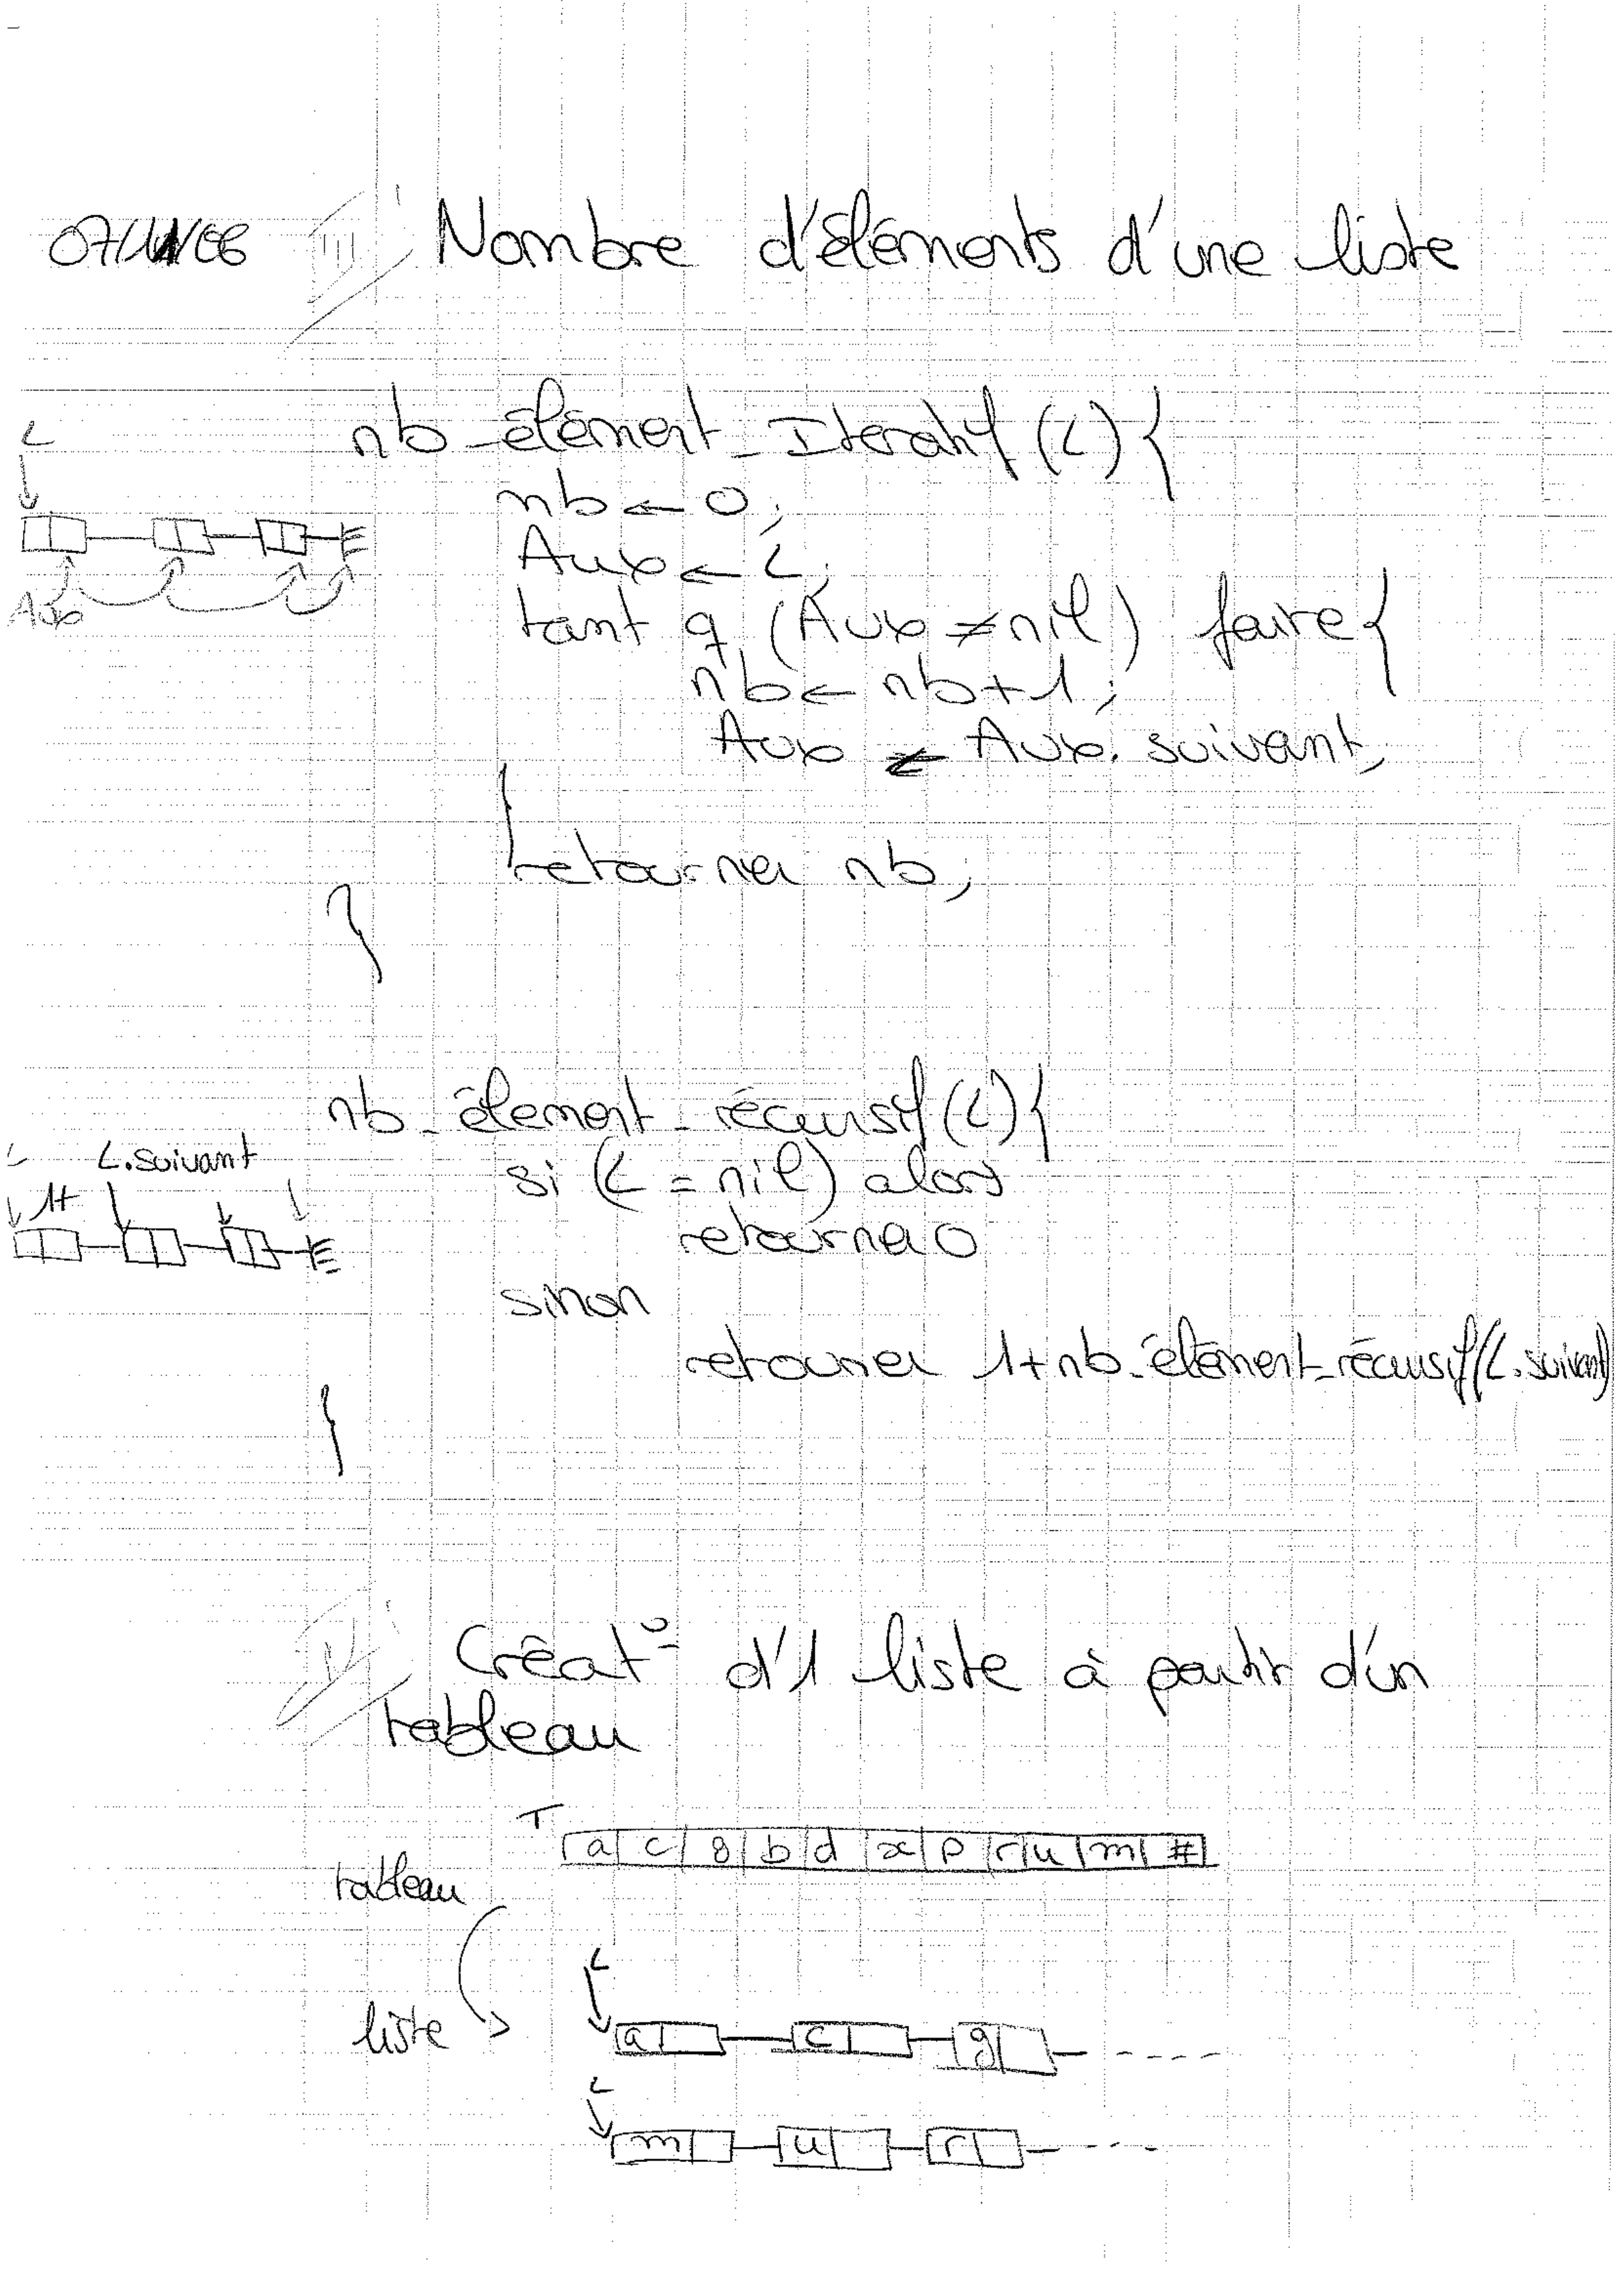 07/11/06 III/ Nombre d'éléments d'une liste
nb_élément_Iteratif (L) {
L
nb ← 0;
Aux ← L;
Aux
tant q (Aux ≠ nil) faire {
nb ← nb + 1;
Aux ← Aux. suivant;
}
retourner nb;
}
nb_élément_récursif (L) {
L L.suivant
si (L = nil) alors
1+
retourner 0
sinon
retourner 1+nb_élément_récursif (L.suivant)
}
IV/ Créat° d'1 liste à partir d'un
tableau
T
a c g b d x p r u m #
tableau
L
liste a c g ----
L
m u r ----